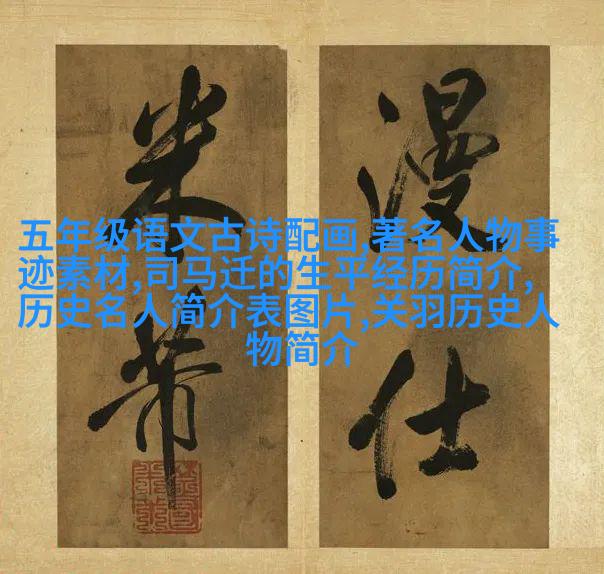 漫仕
米芾
五年级语文古诗配画,著名人物事
迹素材,司马迁的生平经历简介,
历史名人简介表图片,关羽历史人
物简介